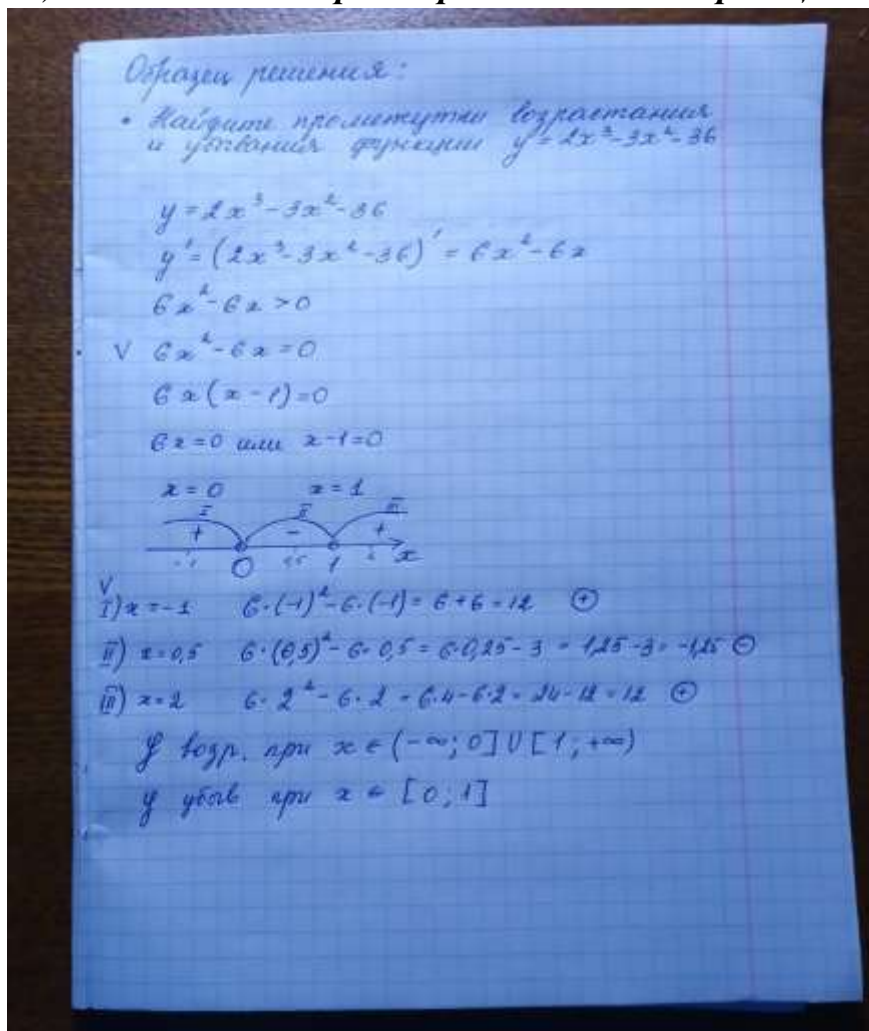 Образец решения:
• Найдите промежутки возрастания
и убывания функции y = 2x³-3x²-36
y = 2x³-3x²-36
y' = (2x³-3x²-36)' = 6x²-6x
6x²-6x > 0
V 6x²-6x = 0
6x(x-1)=0
6x=0 или x-1=0
x = 0 x = 1
I II III
+ - +
-1 0 0,5 1 2 x
V
I) x = -1 6·(-1)²-6·(-1) = 6+6 = 12 (+)
II) x = 0,5 6·(0,5)²-6·0,5 = 6·0,25-3 = 1,25-3 = -1,25 (-)
III) x = 2 6·2²-6·2 = 6·4-6·2 = 24-12 = 12 (+)
y возр. при x ∈ (-∞; 0] U [1; +∞)
y убыв при x ∈ [0; 1]